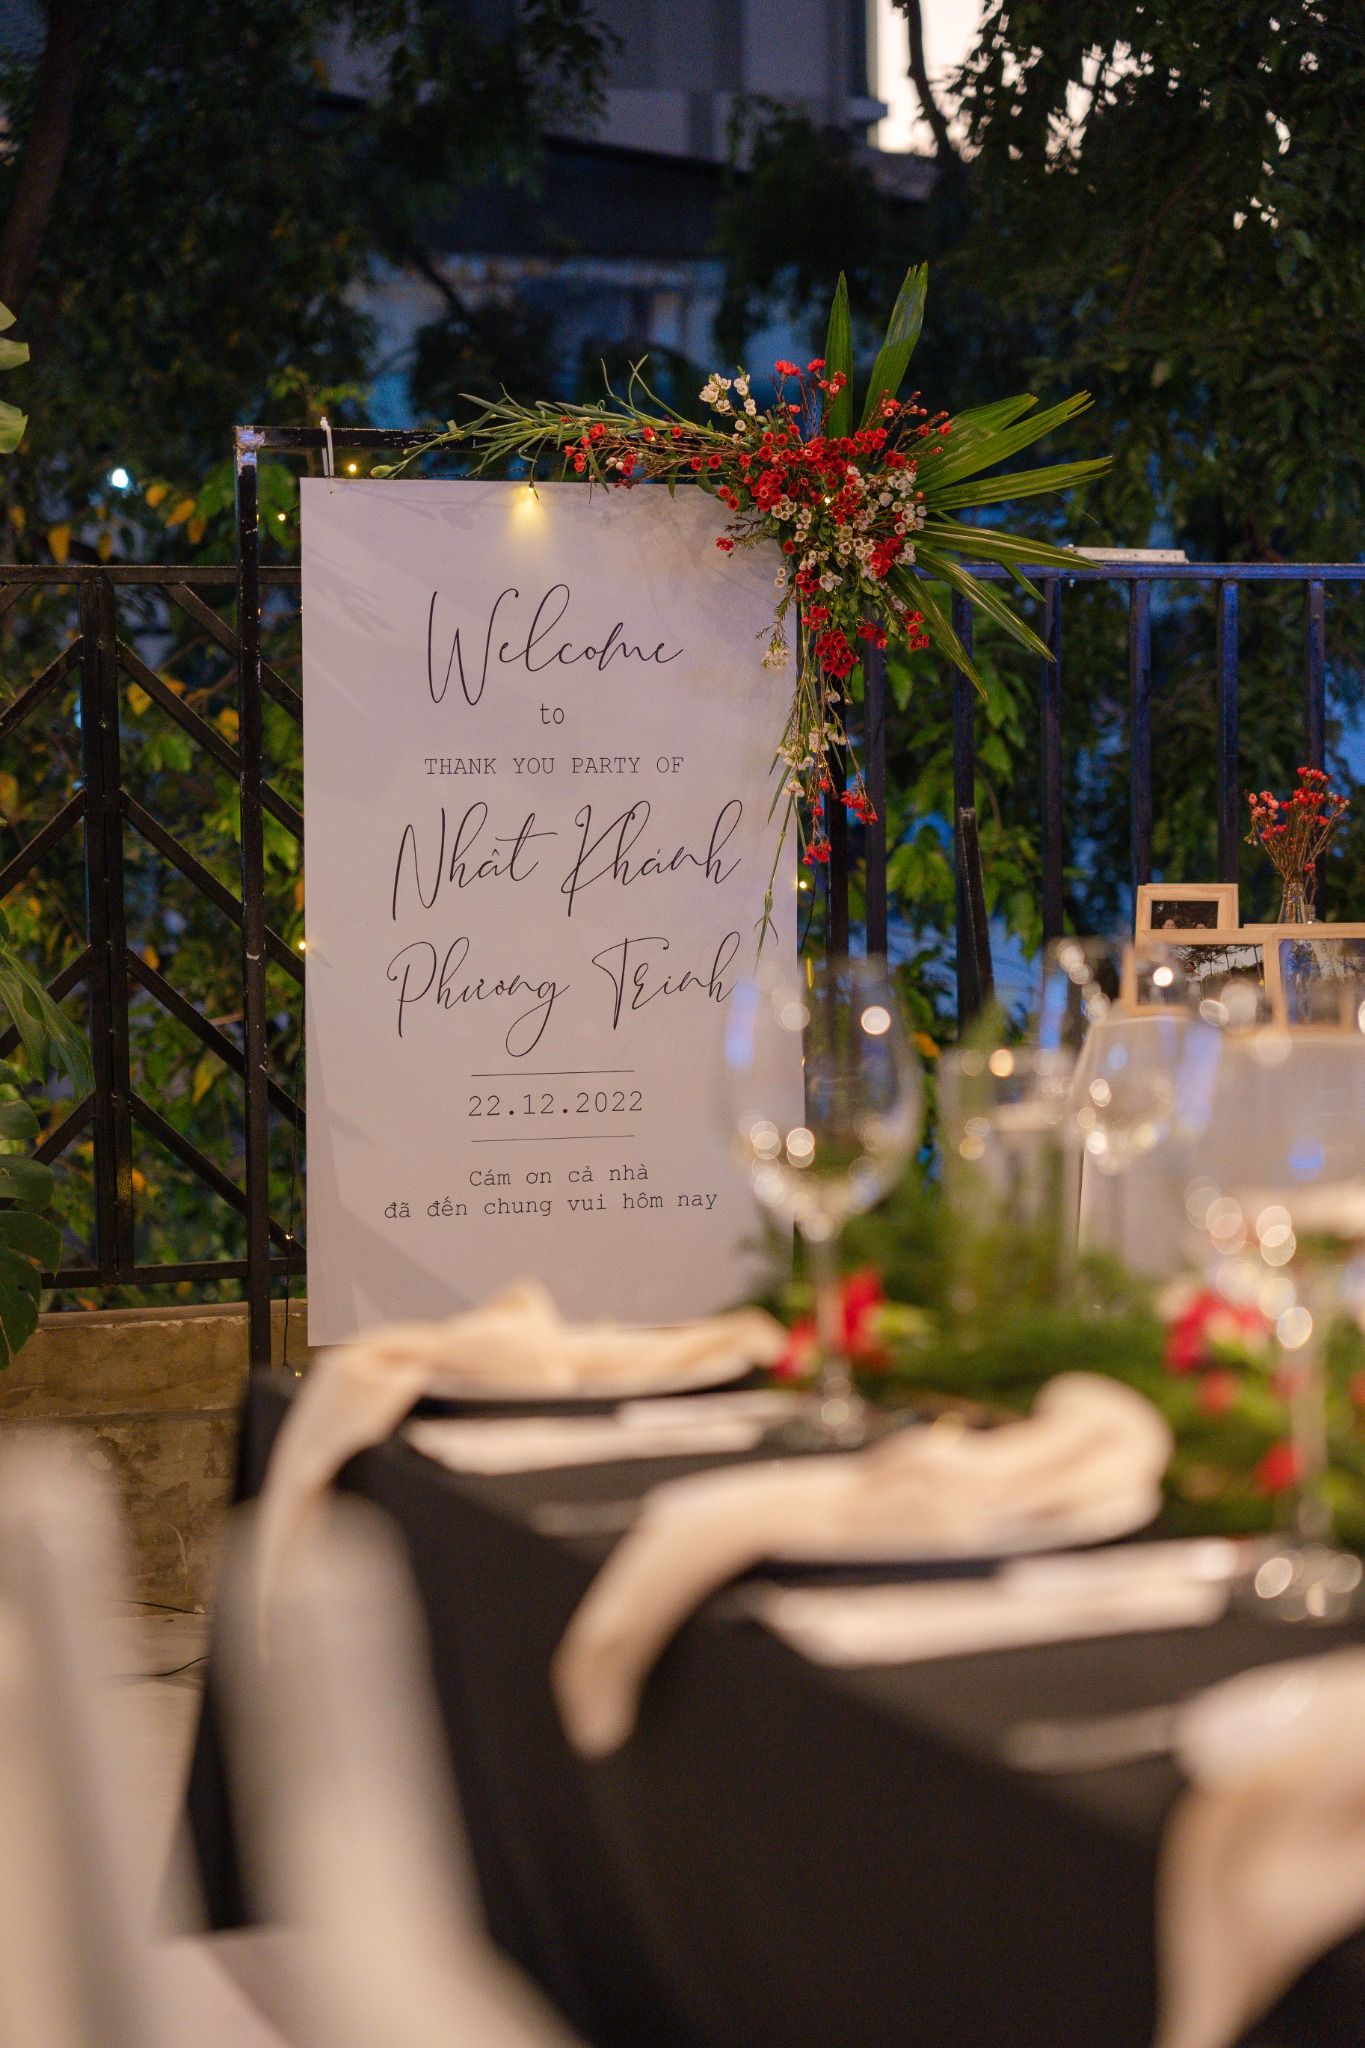 Welcome
to
THANK YOU PARTY OF
Nhât Khánh
Phương Trinh
22.12.2022
Cám ơn cả nhà
đã đến chung vui hôm nay